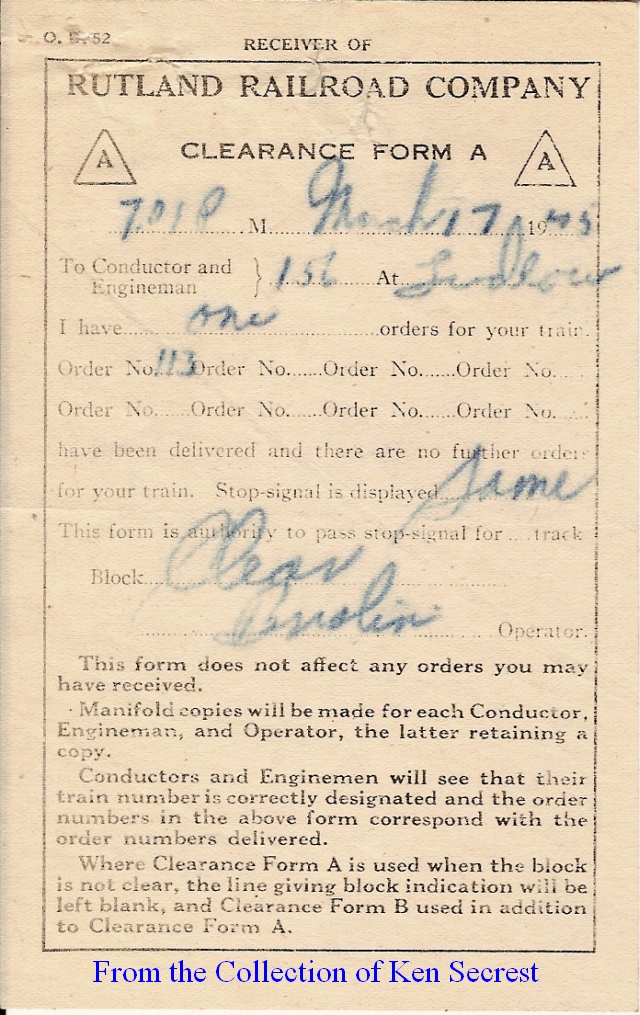 O. B. 52
RECEIVER OF
RUTLAND RAILROAD COMPANY
A CLEARANCE FORM A A
7 01 P M. March 17 1945
To Conductor and Engineman } 156 At Ludlow
I have one orders for your train.
Order No. 113 Order No. Order No. Order No.
Order No. Order No. Order No. Order No.
have been delivered and there are no further orders
for your train. Stop-signal is displayed Same
This form is authority to pass stop-signal for track
Block Clear
Operator.
This form does not affect any orders you may
have received.
Manifold copies will be made for each Conductor,
Engineman, and Operator, the latter retaining a
copy.
Conductors and Enginemen will see that their
train number is correctly designated and the order
numbers in the above form correspond with the
order numbers delivered.
Where Clearance Form A is used when the block
is not clear, the line giving block indication will be
left blank, and Clearance Form B used in addition
to Clearance Form A.
From the Collection of Ken Secrest